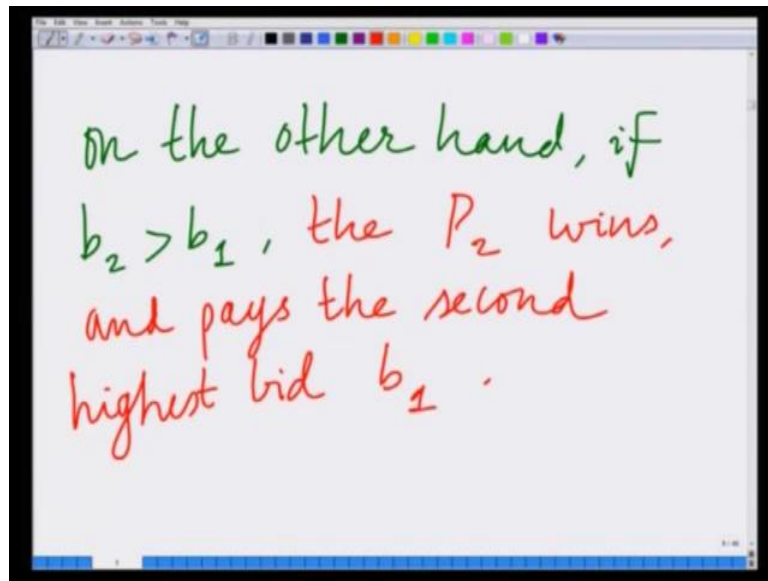 File Edit View Insert Actions Tools Help
on the other hand, if
b₂ > b₁, the P₂ wins,
and pays the second
highest bid b₁.